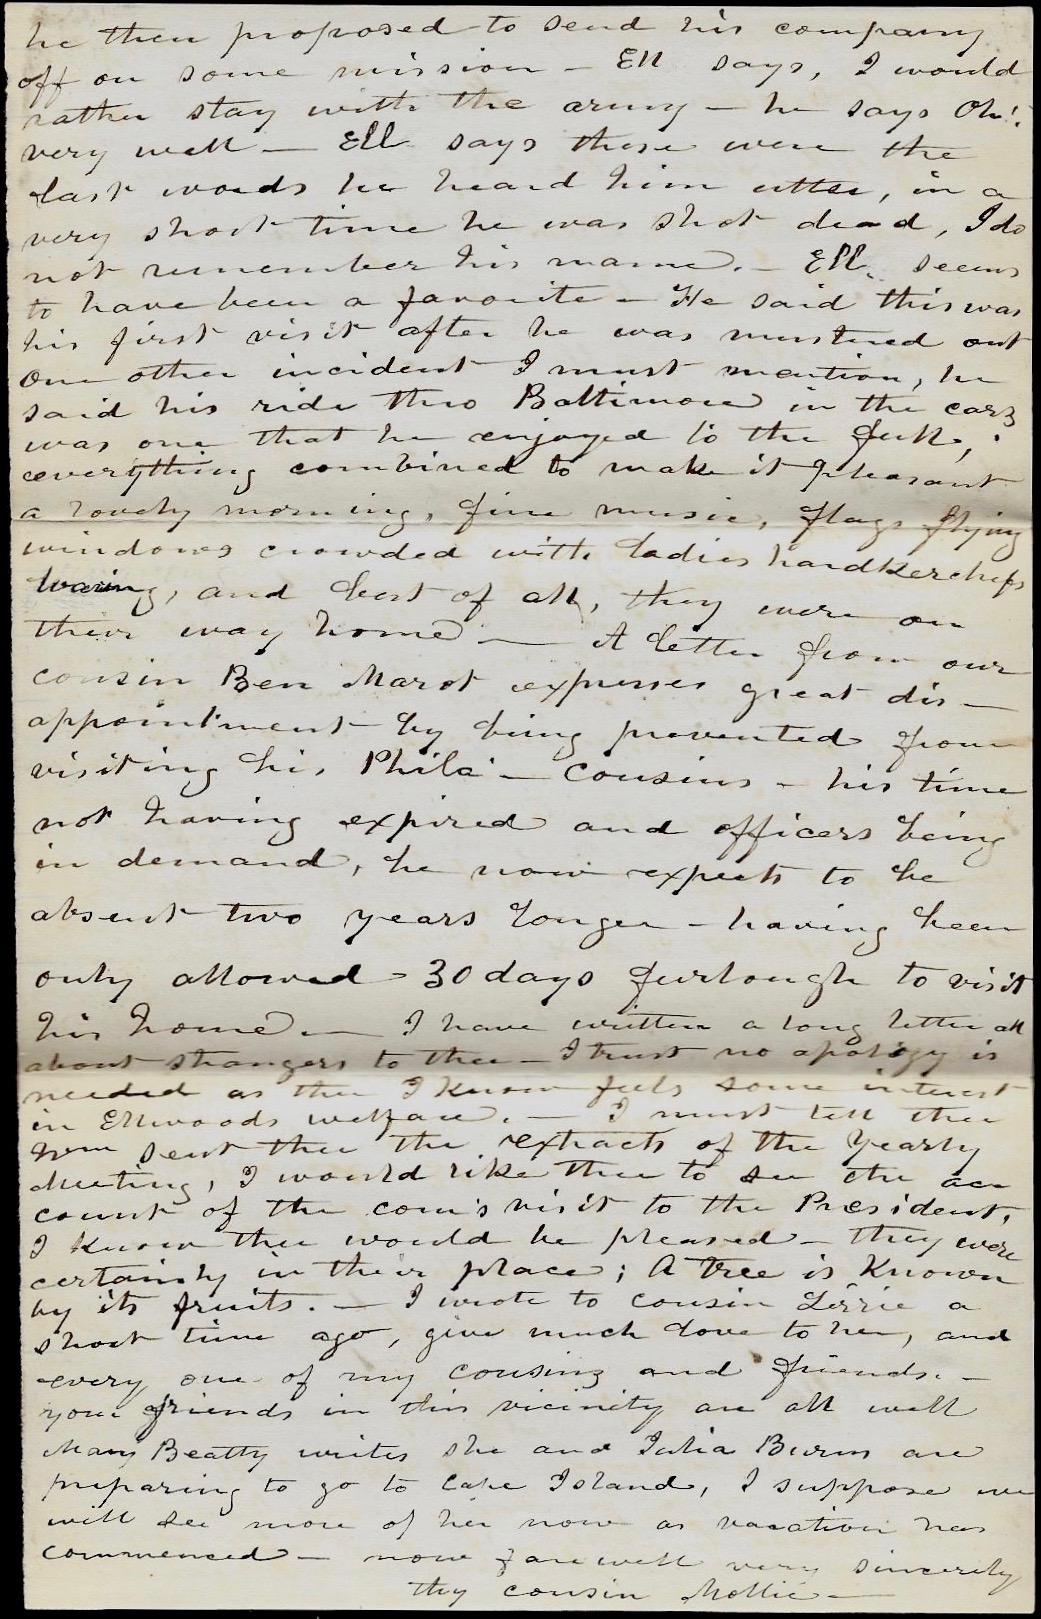 he then proposed to send his company
off on some mission – Ell says, I would
rather stay with the army – he says Oh!
very well – Ell says these were the
last words he heard him utter, in a
very short time he was shot dead, I do
not remember his name. – Ell. seems
to have been a favorite – He said this was
his first visit after he was mustered out
one other incident I must mention, he
said his ride thro Baltimore in the cars
was one that he enjoyed to the full,
everything combined to make it pleasant
a lovely morning, fine music, flags flying
windows crowded with ladies handkerchefs
waving, and best of all, they were on
their way home – A letter from our
cousin Ben Marot expresses great dis–
appointment by being prevented from
visiting his Phila – cousins – his time
not having expired and officers being
in demand, he now expects to be
absent two years longer – having been
only allowed – 30 days furlough to visit
his home. – I have written a long letter all
about strangers to thee – I trust no apology is
needed as thee I know feels some interest
in Ellwoods welfare. – I must tell thee
sent thee the extracts of the Yearly
Meeting, I would like thee to see the ac
count of the com's visit to the President,
I know thee would be pleased – they were
certainly in their place; A tree is Known
by its fruits. – I wrote to cousin Lizzie a
short time ago, give much love to her, and
every one of my cousins and friends. –
your friends in this vicinity are all well
Mary Beatty writes she and Julia Burns are
preparing to go to Cape Island, I suppose we
will see more of her now as vacation has
commenced – now farewell very sincerely
thy cousin Mollie –